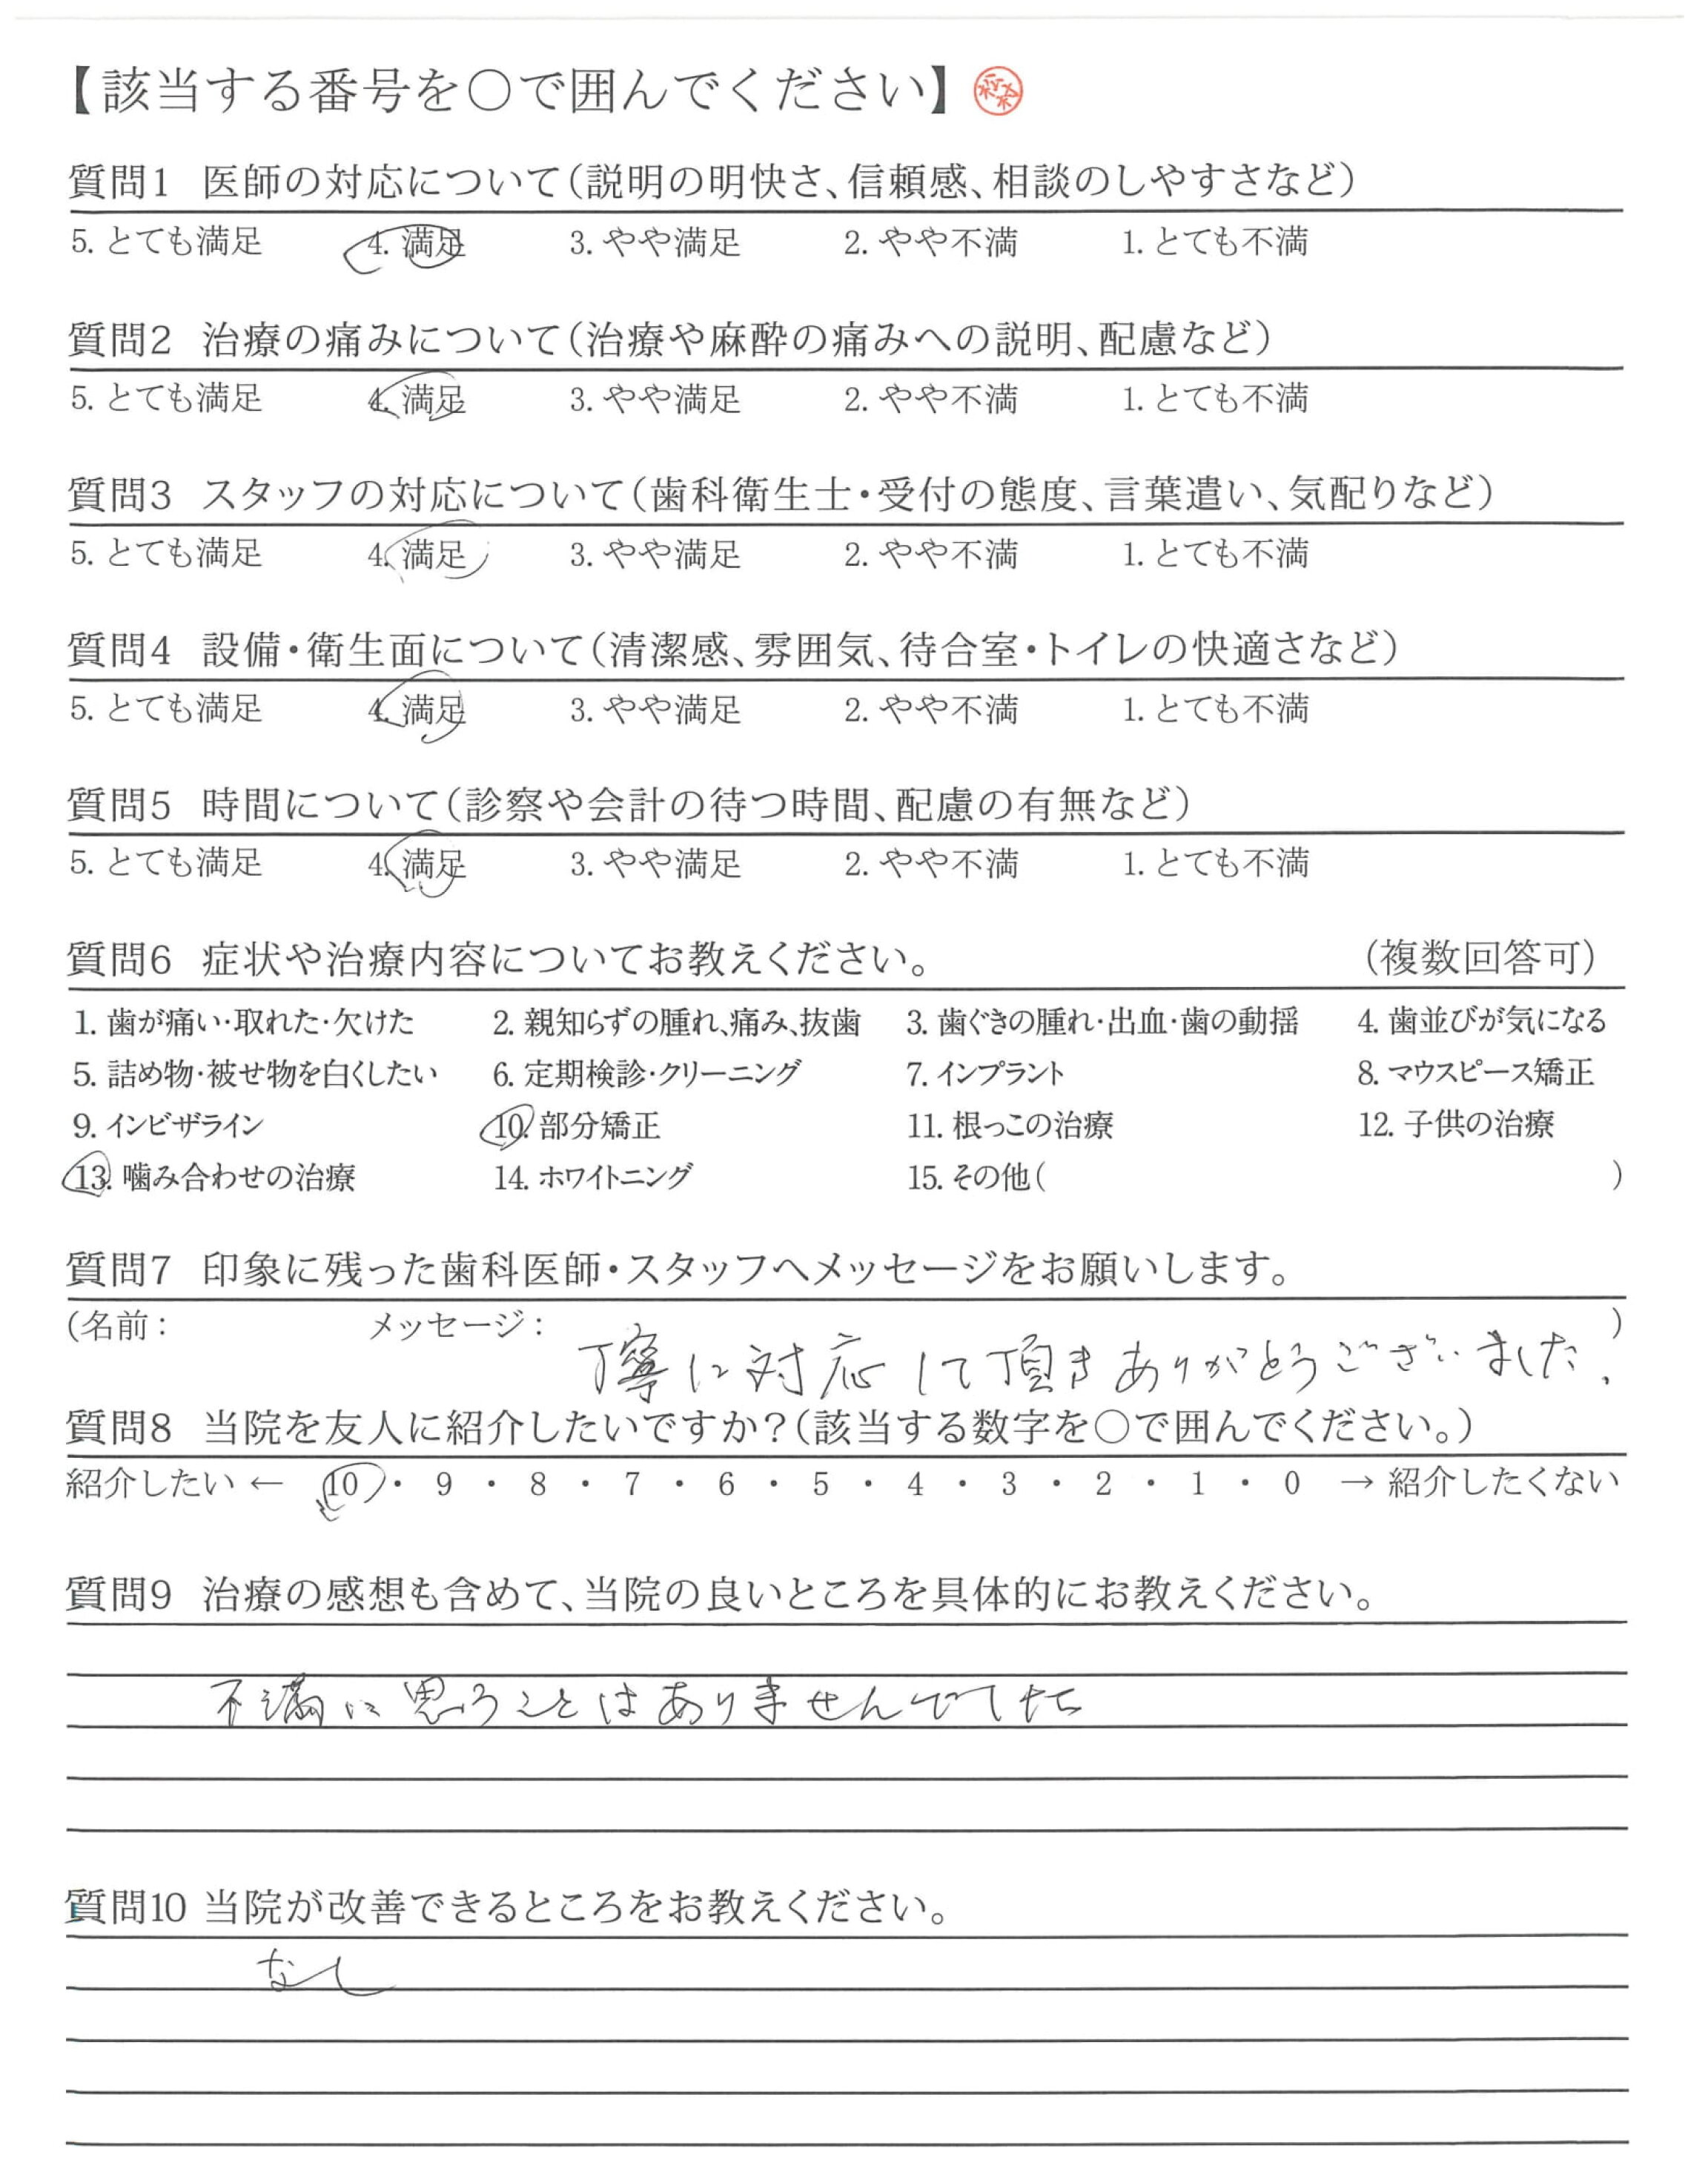 【該当する番号を○で囲んでください】
質問1 医師の対応について（説明の明快さ、信頼感、相談のしやすさなど）
5. とても満足 4. 満足 3. やや満足 2. やや不満 1. とても不満
質問2 治療の痛みについて（治療や麻酔の痛みへの説明、配慮など）
5. とても満足 4. 満足 3. やや満足 2. やや不満 1. とても不満
質問3 スタッフの対応について（歯科衛生士・受付の態度、言葉遣い、気配りなど）
5. とても満足 4. 満足 3. やや満足 2. やや不満 1. とても不満
質問4 設備・衛生面について（清潔感、雰囲気、待合室・トイレの快適さなど）
5. とても満足 4. 満足 3. やや満足 2. やや不満 1. とても不満
質問5 時間について（診察や会計の待つ時間、配慮の有無など）
5. とても満足 4. 満足 3. やや満足 2. やや不満 1. とても不満
質問6 症状や治療内容についてお教えください。 （複数回答可）
1. 歯が痛い・取れた・欠けた 2. 親知らずの腫れ、痛み、抜歯 3. 歯ぐきの腫れ・出血・歯の動揺 4. 歯並びが気になる
5. 詰め物・被せ物を白くしたい 6. 定期検診・クリーニング 7. インプラント 8. マウスピース矯正
9. インビザライン 10. 部分矯正 11. 根っこの治療 12. 子供の治療
13. 噛み合わせの治療 14. ホワイトニング 15. その他（ ）
質問7 印象に残った歯科医師・スタッフへメッセージをお願いします。
（名前： メッセージ： ）
丁寧に対応して頂きありがとうございました.
質問8 当院を友人に紹介したいですか？（該当する数字を○で囲んでください。）
紹介したい ← 10 ・ 9 ・ 8 ・ 7 ・ 6 ・ 5 ・ 4 ・ 3 ・ 2 ・ 1 ・ 0 → 紹介したくない
質問9 治療の感想も含めて、当院の良いところを具体的にお教えください。
不満に思うことはありませんでした
質問10 当院が改善できるところをお教えください。
なし